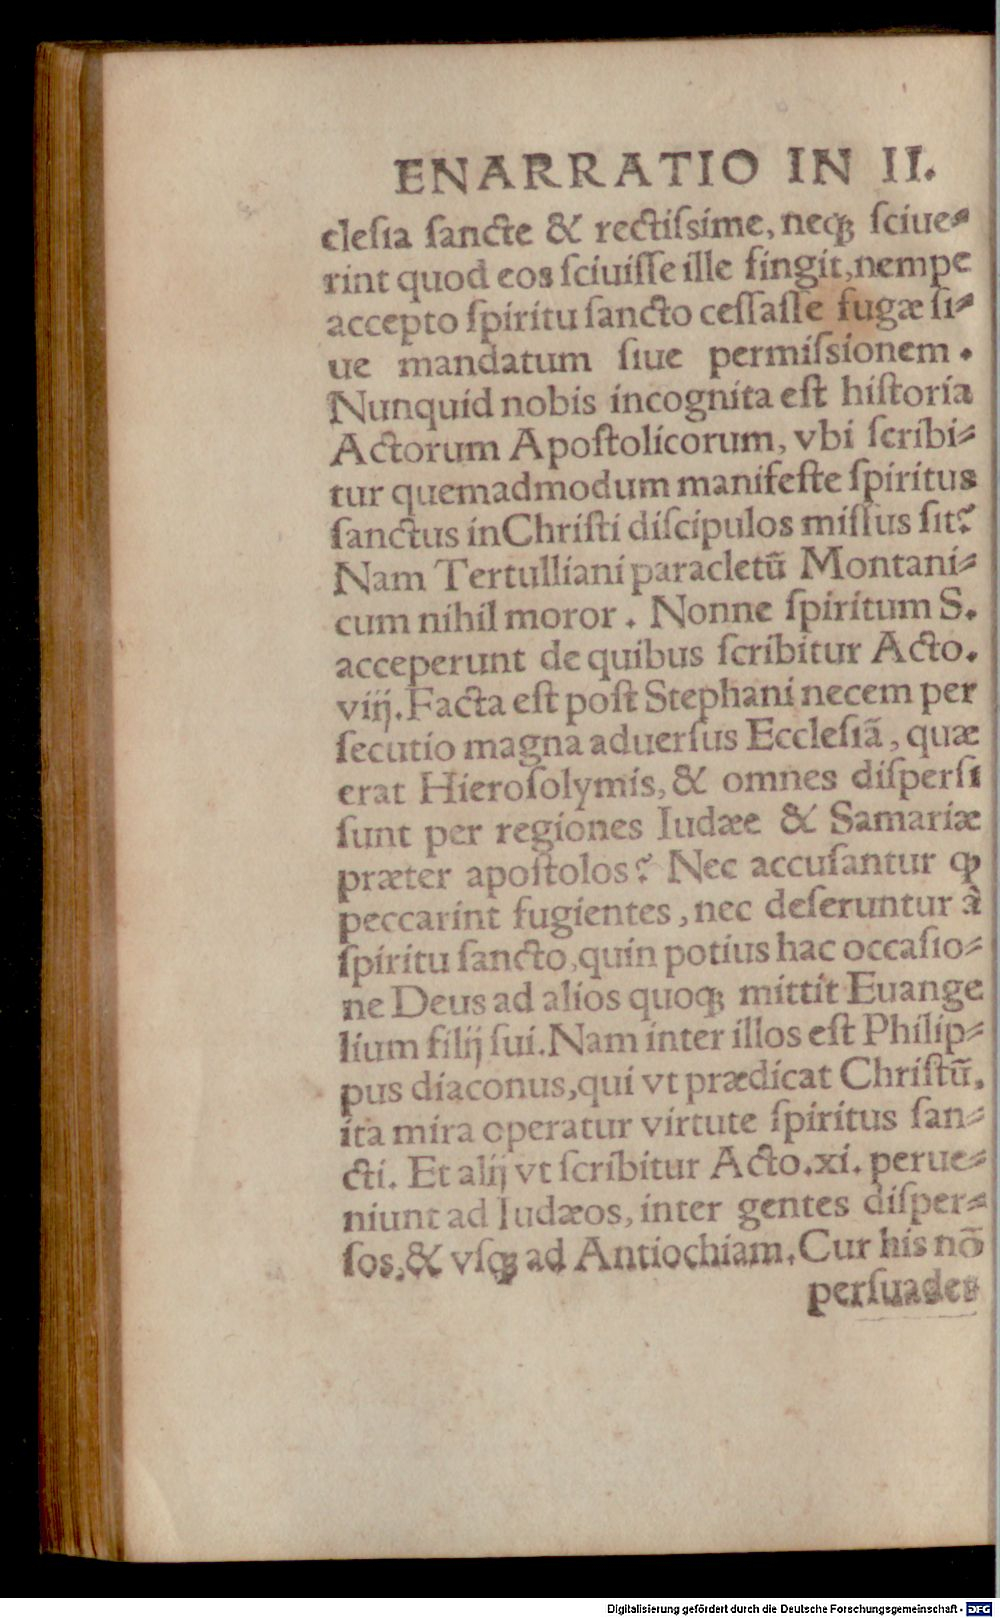 ENARRATIO IN II.
clesia sancte & rectissime, neq; sciue-
rint quod eos sciuisse ille fingit, nempe
accepto spiritu sancto cessasse fugæ si-
ue mandatum siue permissionem.
Nunquid nobis incognita est historia
Actorum Apostolicorum, vbi scribi-
tur quemadmodum manifeste spiritus
sanctus in Christi discipulos missus sit?
Nam Tertulliani paracletū Montani-
cum nihil moror. Nonne spiritum S.
acceperunt de quibus scribitur Acto.
viij. Facta est post Stephani necem per
secutio magna aduersus Ecclesiã, quæ
erat Hierosolymis, & omnes dispersi
sunt per regiones Iudæe & Samariæ
præter apostolos? Nec accusantur ꝙ
peccarint fugientes, nec deseruntur à
spiritu sancto, quin potius hac occasio-
ne Deus ad alios quoq; mittit Euange
lium filij sui. Nam inter illos est Philip-
pus diaconus, qui vt prædicat Christū,
ita mira operatur virtute spiritus san-
cti. Et alij vt scribitur Acto. xi. perue-
niunt ad Iudæos, inter gentes disper-
sos, & vsq; ad Antiochiam. Cur his nõ
persuades
Digitalisierung gefördert durch die Deutsche Forschungsgemeinschaft - DFG